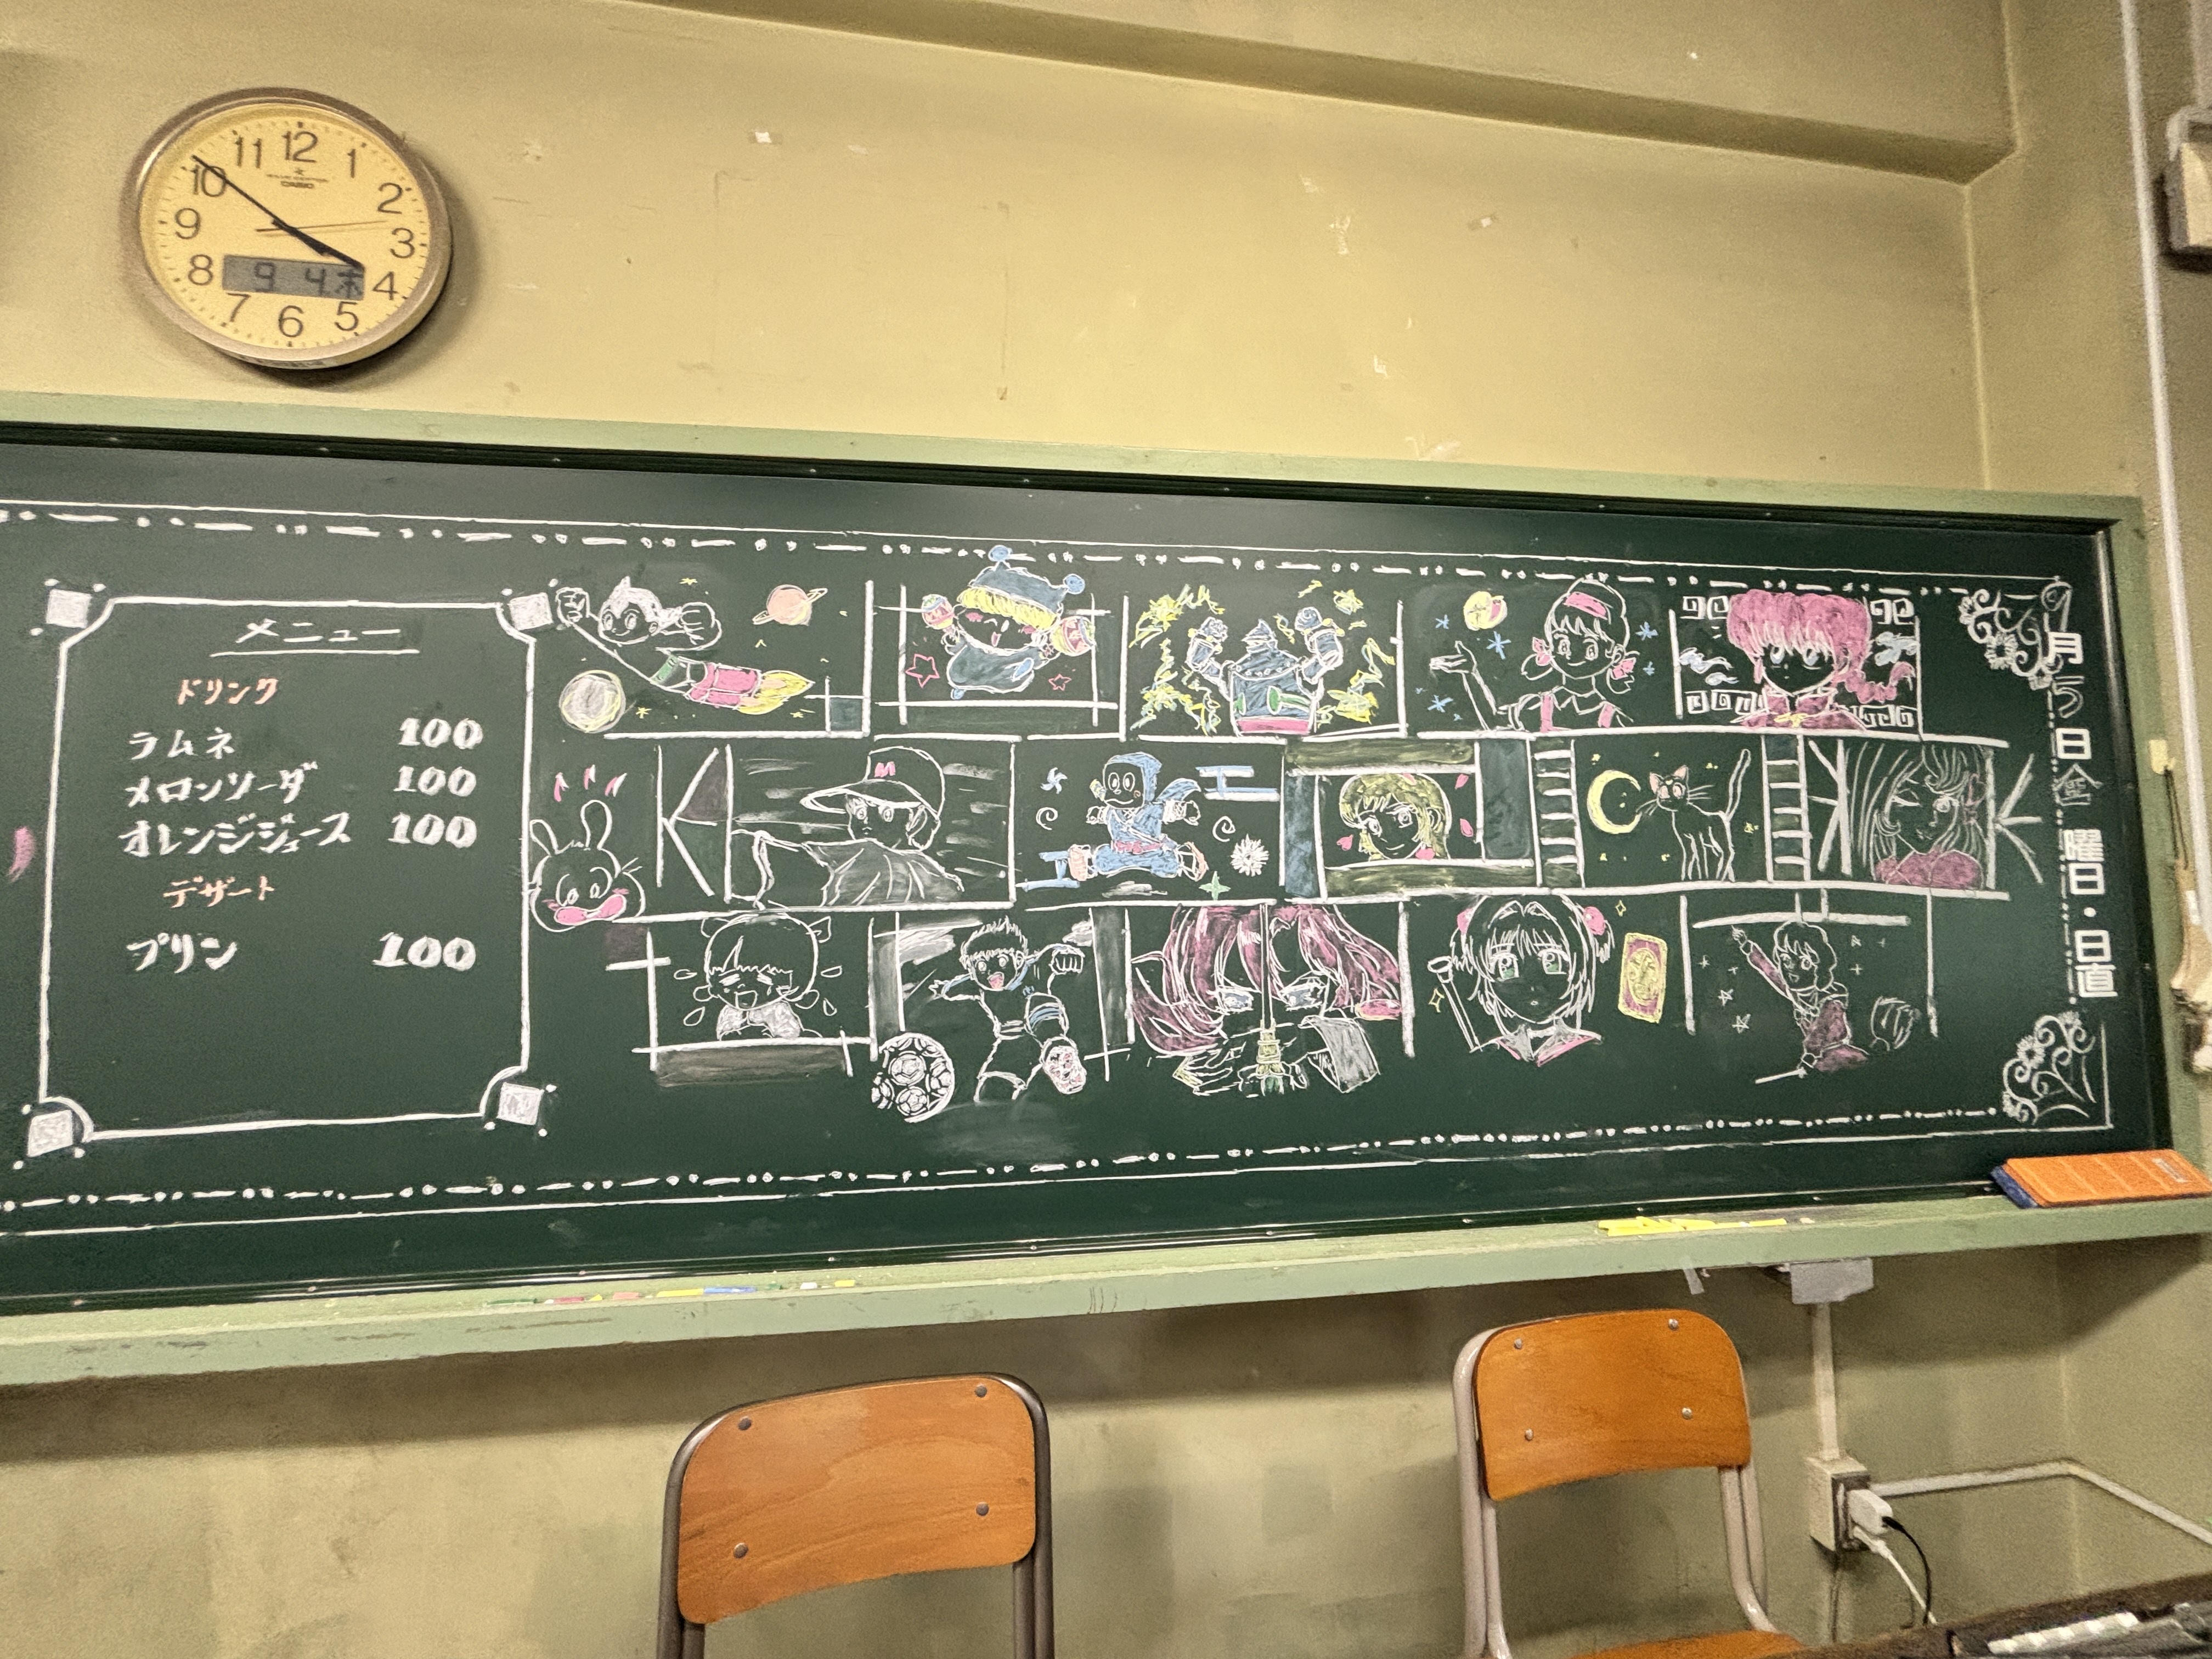 12
1
2
3
4
5
6
7
8
9
10
11
CASIO
9 4 木
メニュー
ドリンク
ラムネ 100
メロンソーダ 100
オレンジジュース 100
デザート
プリン 100
M
9月5日金曜日・日直